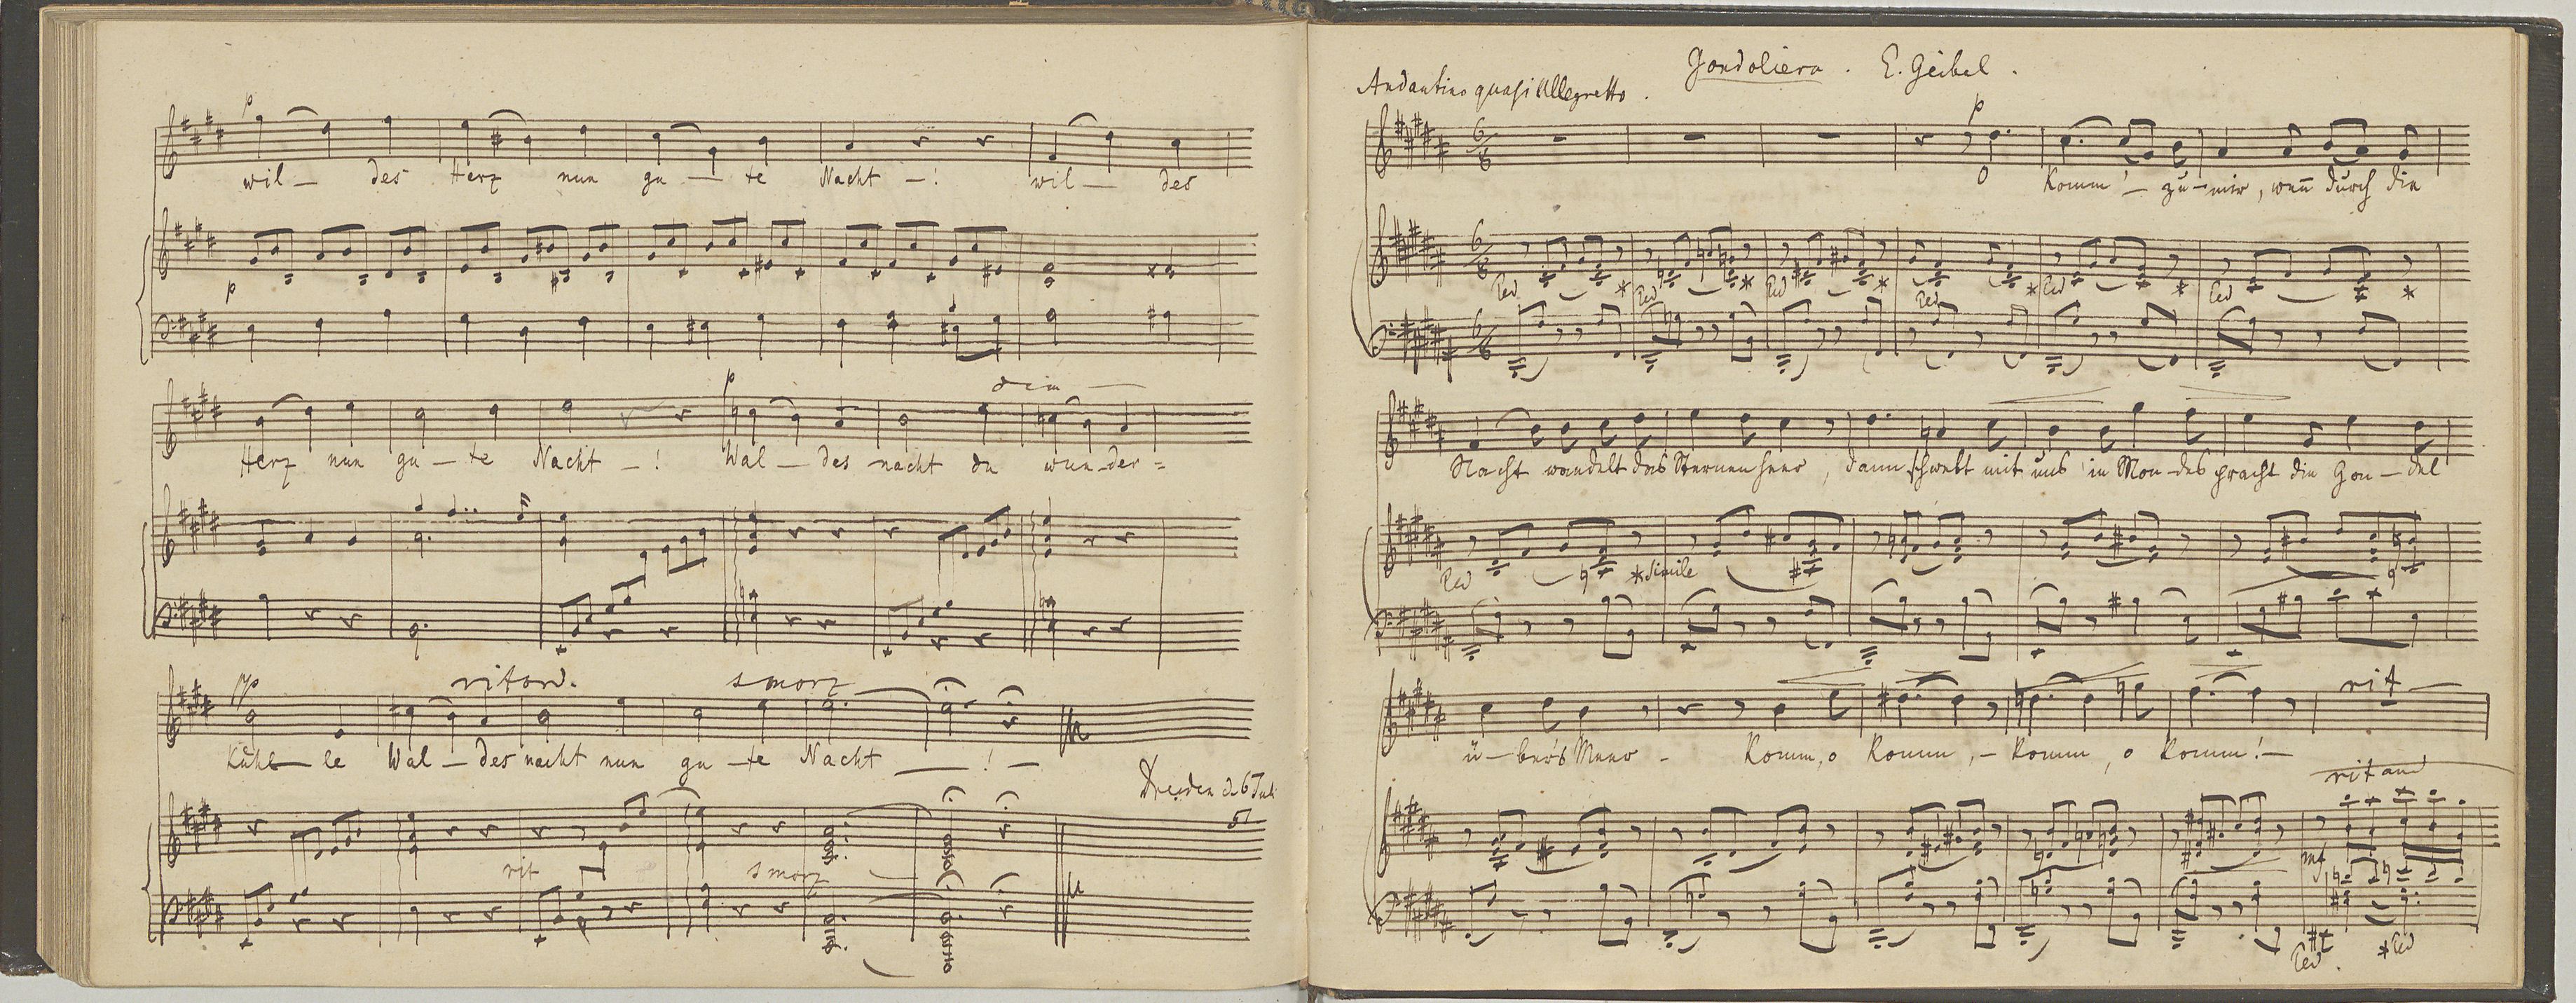 p
wil — des Herz nun gu — te Nacht — ! wil — des
p
p dim —
Herz nun gu — te Nacht — ! Wal — des nacht du wun — der =
pp ritard. smorz
kühl — le Wal — des nacht nun gu — te Nacht — ! —
Dresden d. 6 Juli
51
rit smorz
Gondoliera . E. Geibel .
Andantino quasi Allegretto .
p
6/8 O komm' — zu — mir, wenn durch die
6/8
Ped * Ped * Ped * Ped * Ped * Ped *
6/8
Nacht wandelt das Sternenheer, dann schwebt mit uns in Mon — des pracht die Gon — del
Ped * simile
rit —
ü — ber's Meer - komm, o komm, — komm, o komm! —
ritard
mf
Ped . * Ped